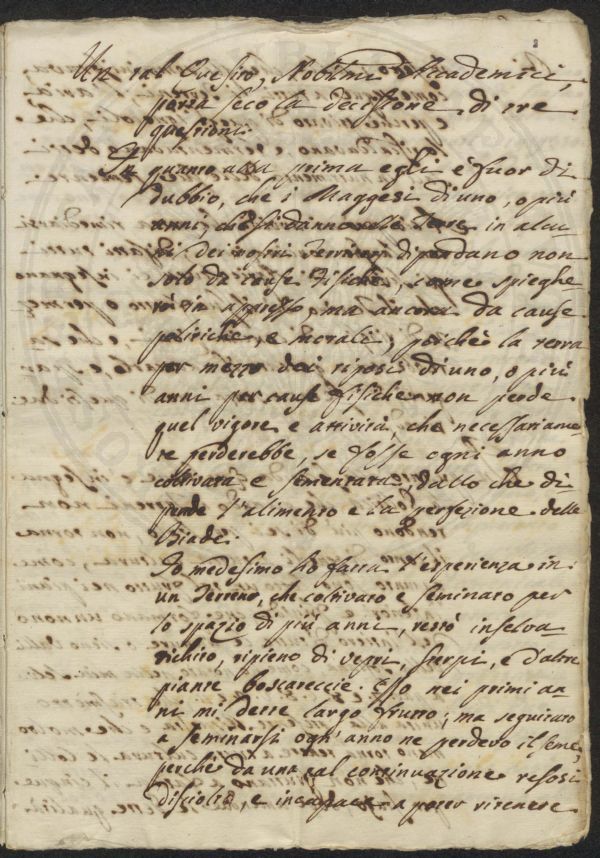 2
Un tal Quesito, Nobilmi Accademici,
porta seco la decisione di tre
questioni.
In quanto alla prima egli è fuor di
dubbio, che i Maggesi di uno, o più
anni, che si danno alle Terre in alcu-
ni dei vostri Territorj dipendano non
solo da cause Fisiche, come spieghe
rò in appresso, ma ancora da cause
politiche, e morali; poichè la terra
per mezzo dei riposi di uno, o più
anni per cause fisiche non perde
quel vigore e attività, che necessariame-
te perderebbe, se fosse ogni anno
coltivata e sementata, dallo che di-
pende l'alimento e la perfezione delle
Biade.
Io medesimo ho fatta l'esperienza in
un Terreno, che coltivato e seminato per
lo spazio di più anni, restò inselva
tichito, ripieno di vepri, sterpi, e d'altre
piante boscareccie. Esso nei primi an-
ni mi dette largo frutto; ma seguitato
a seminarsi ogn'anno ne perdevo il seme,
perchè da una tal continuazione resosi
disciolto, e incapace a poter ritenere